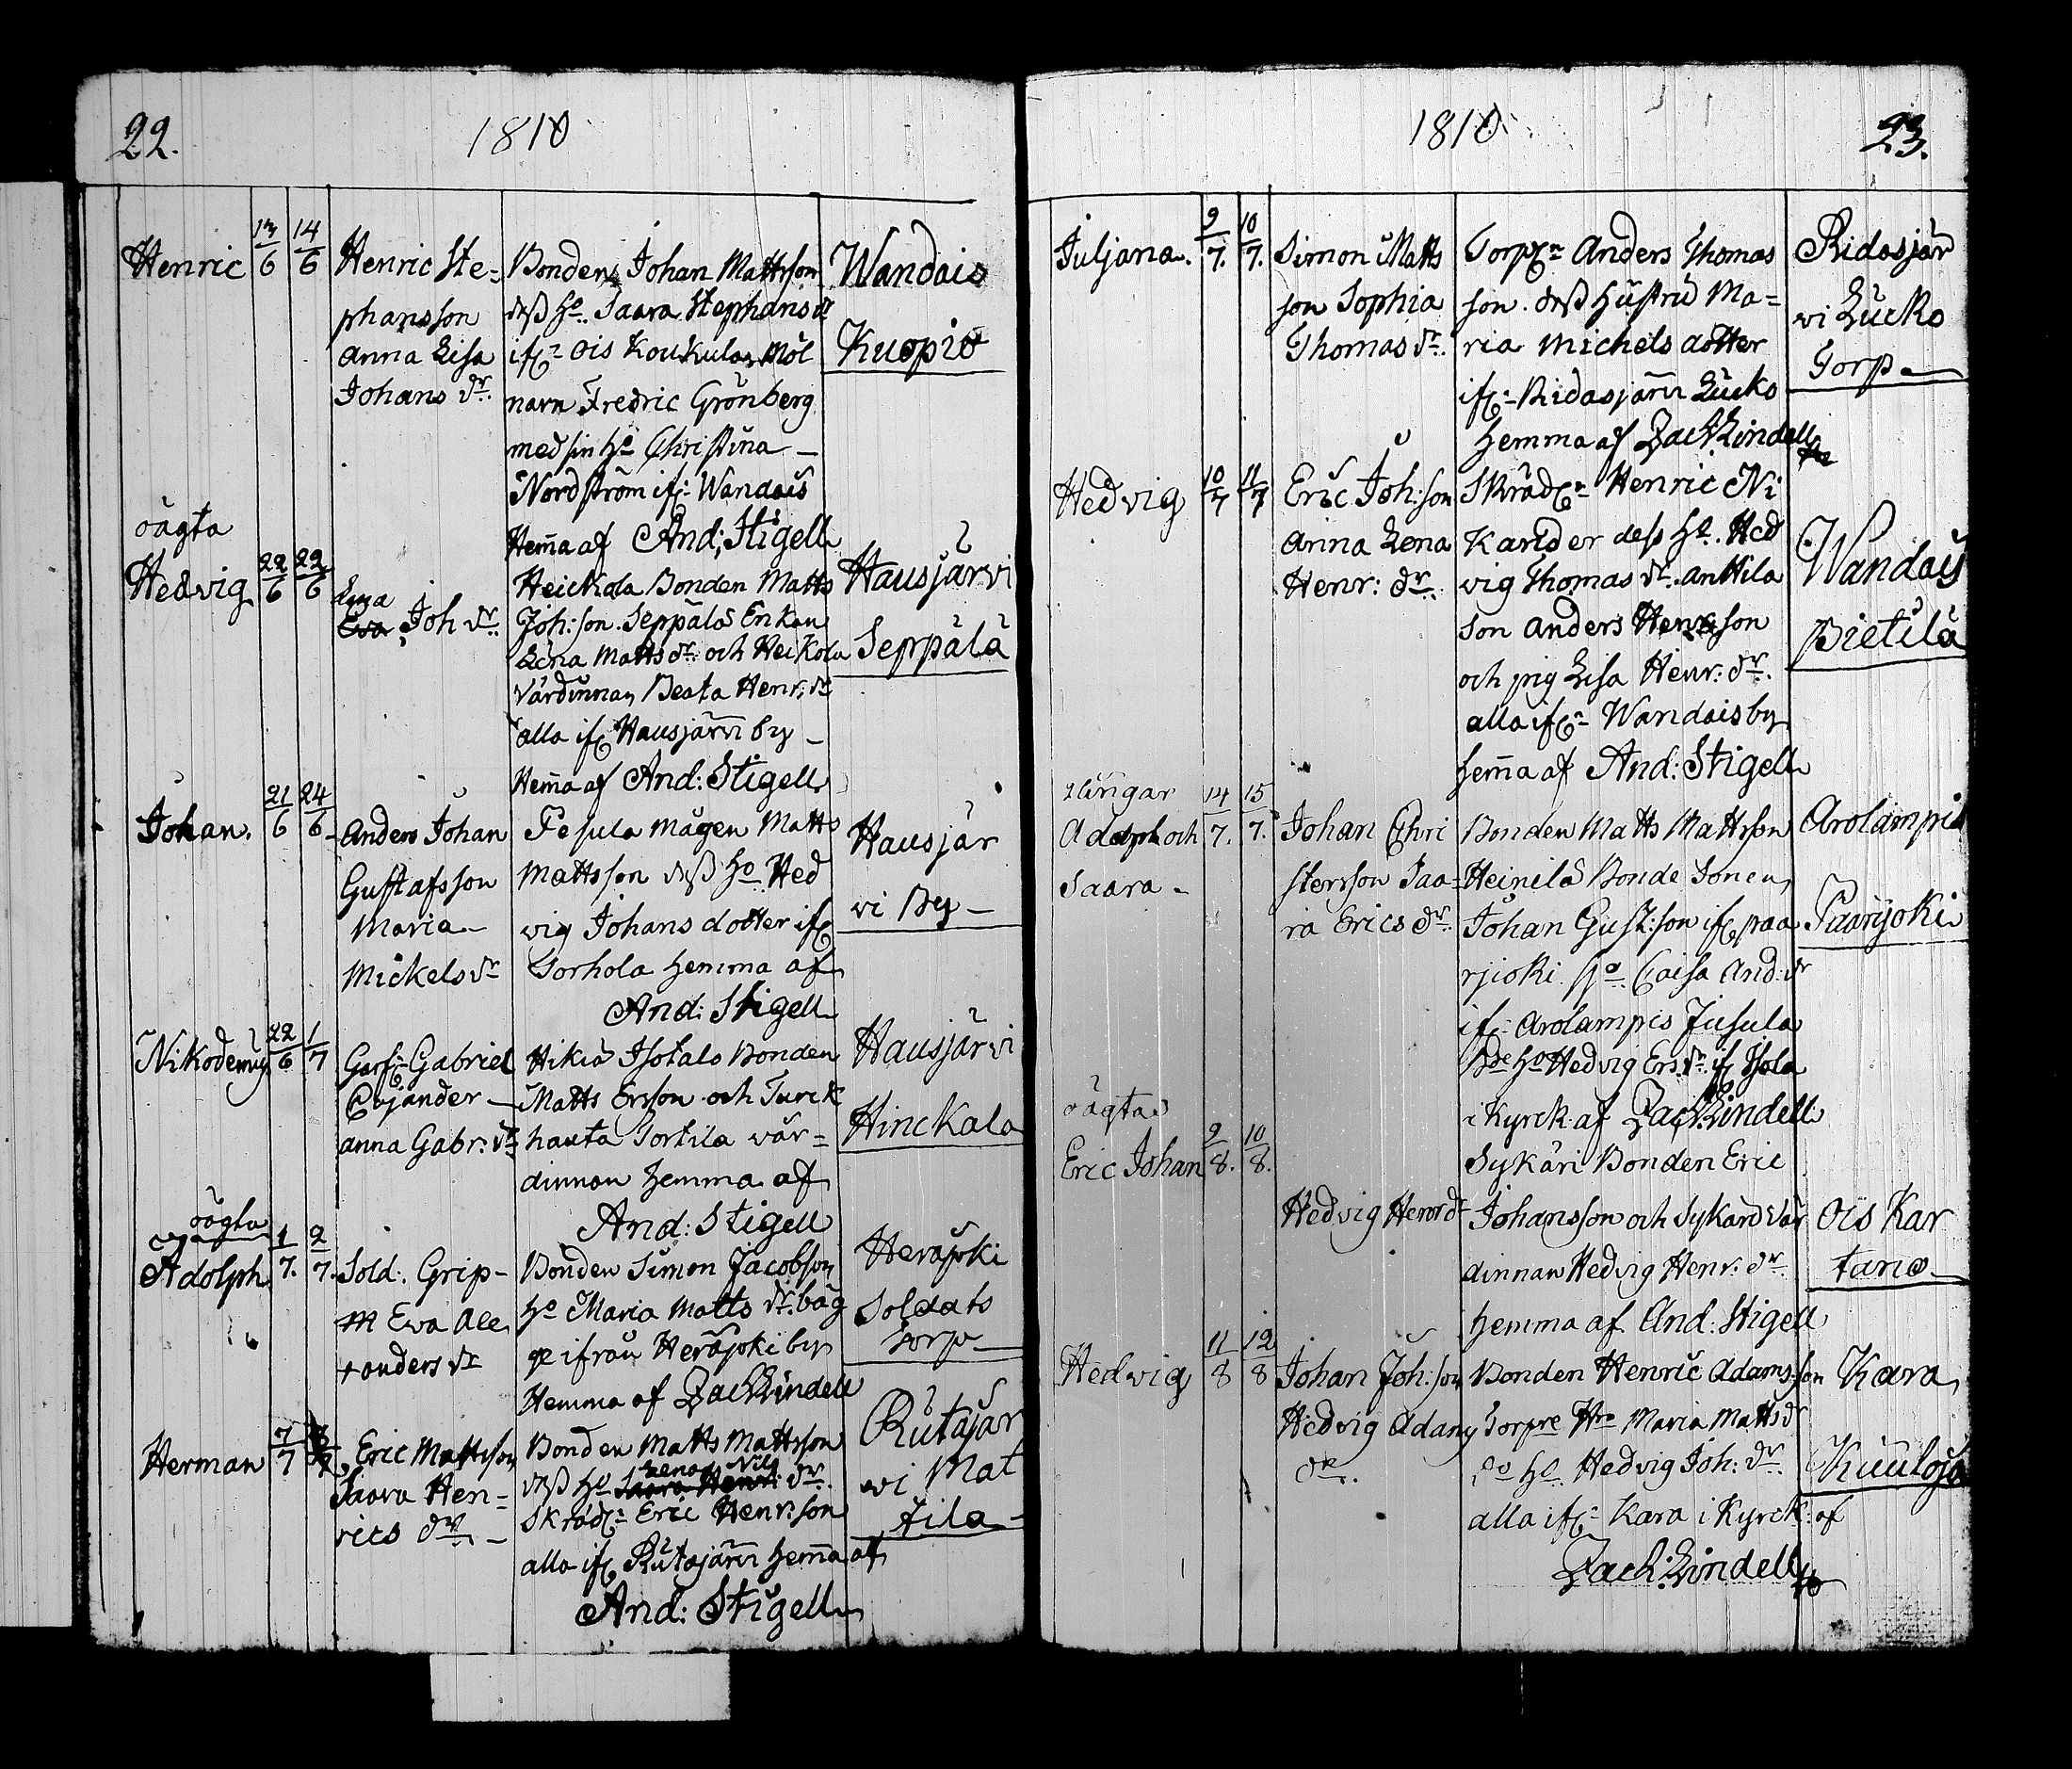 22.
1810
Henric
13/6
14/6
Henric Ste=
phansson
Anna Lisa
Johans dr.
Bonden Johan Mattsson
dess Ho. Saara Stephans dr
ifr. Ois Koukulas Möl
naren Fredric Grönberg
med sin Ho Christina _
Nordström ifr. Wandais
Hema af And; Stigell
Wandais
Kuopio
oägta
Hedvig
22/6
22/6
Lena
Eva, Joh dr.
Heickola Bonden Matts
Joh:son. Seppälä Enkan
Lena Matts dr. och Heikola
Värdinnan Beata Henr: dr
alla ifr. Hausjärvi by _
Hema af And: Stigell
Hausjärvi
Seppälä
Johan.
21/6
24/6
Anders Johan
Gustafsson
Maria _
Mickels dr
Mågen Matts
Mattsson dess Ho. Hed
vig Johans dotter ifr
Torhola hemma af
And: Stigell
Hausjär
vi By _
Nikodemus
22/6
1/7
Garf. Gabriel
Cajander _
Anna Gabr: dr
Hikiä Isotalo Bonden
Matts Ersson och Turck
hauta Tortila wär=
dinnan hemma af
And: Stigell
Hausjärvi
Hinckala
oägta
Adolph
1/7.
2/7.
Sold. Grip _
Ewa
anders dr
Bonden Simon Jacobson
Ho Maria Matts dr. båg
ge ifrån Heräjoki by
Hemma af Zach Lindell
Heräjoki
Soldats
Torp _
Herman
7/7
Eric Mattsson
Saara Hen=
rics dr. _
Bonden Matts Mattsson
Lena Nils
dess Ho Saara Henr: dr.
Skräd. Eric Henr:son
alla ifr. Rutajärvi hema af
And: Stigell
Rutajär
vi Mat
tila _
1810
23.
Juljana.
9/7.
10/7.
Simon Matts
son Sophia
Thomas dr.
Torp. Anders Thomas
son. dess hustru Ma=
ria Michels dotter
ifr. Ridasjärvi Lucko
hemma af Zach Lindell
Ridasjär
vi Lucko
Torp _
Hedvig
10/7
11/7
Eric Joh:son
Anna Lena
Henr: dr.
Skräd. Henric Ni
kander dess Ho. Hed
vig Thomas dr. Anttila
Son Anders Henr:son
och pig Lisa Henr: dr.
alla ifr. Wandais by
hema af And: Stigell
Wandais
Pietilä
Adolph och
Saara _
14/7.
15/7.
Johan Chri
stersson Saa=
ra Erics dr.
Bonden Matts Mattsson
Heinilä Bonde Sonen
Johan Gust:son ifr. paa
rjioki. Caisa And: dr
ifr. Arolampis Jusula
Bde Ho Hedvig Ers. dr. ifr Isola
i Kyrck. af Zach: Lindell
Arolampis
Paarijoki
oägta
Eric Johan
9/8.
10/8.
Hedvig Henr dr
Sykäri Bonden Eric
Johansson och Sykäri Vär
dinnan Hedvig Henr: dr.
hemma af And: Stigell
Ois Kar
tano _
Hedvig
11/8
12/8
Johan Joh:son
Hedvig Adams
dr.
Bonden Henric Adams:son
Torpre Hro Maria Matts dr
do Ho. Hedvig Joh: dr.
alla ifr. Kara i Kyrck: af
Zach: Lindell
Kara
Kuuloja